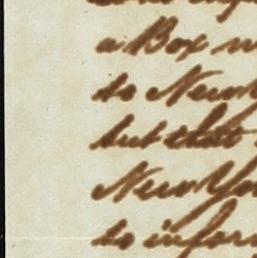 a Box
to New
but that
New Yo
to infor